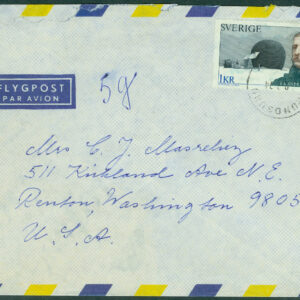 SVERIGE
1KR
FLYGPOST
PAR AVION
5g
Mrs C. J. Masreliez
511 Kirkland Ave N.E.
Renton, Washington 9805
U.S.A.